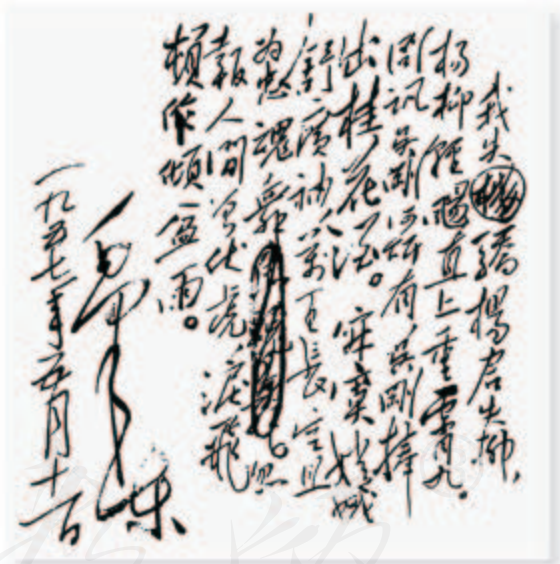 我失驕楊君失柳,
楊柳輕颺直上重霄九。
问讯吴刚何所有吴刚捧
出桂花酒。寂寞嫦娥
舒廣袖萬里長空且
為忠魂舞忽
報人間曾伏虎淚飛
頓作傾盆雨。
毛泽东
一九五七年五月十一日